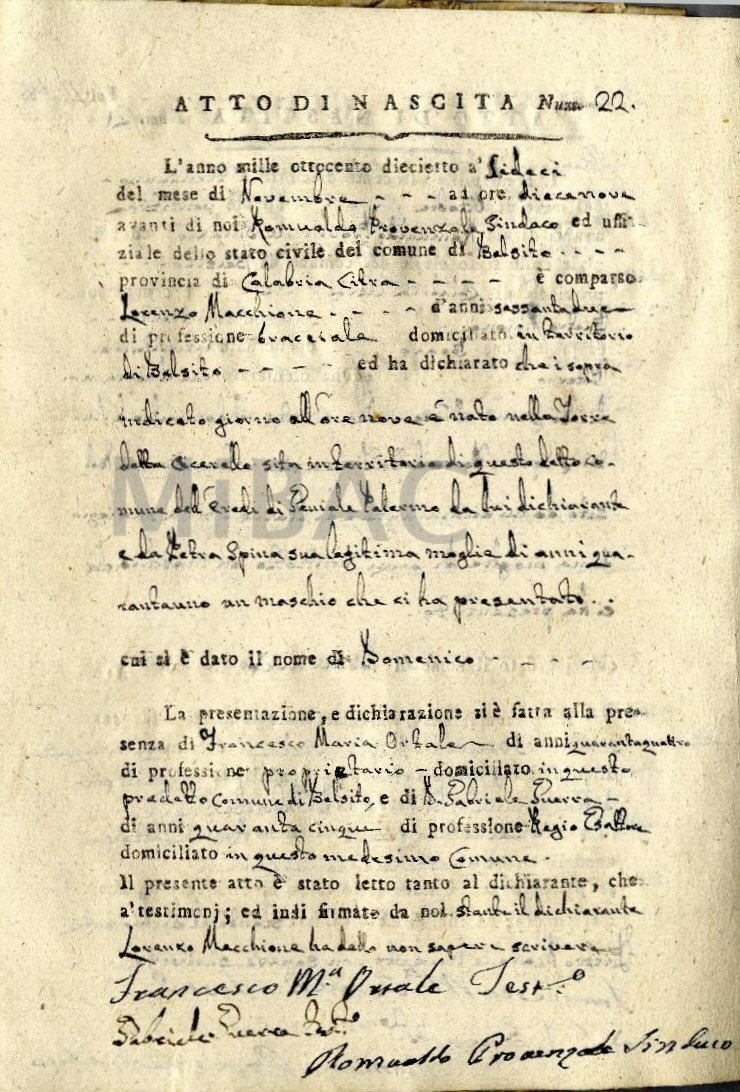 ATTO DI NASCITA Num. 22.
L'anno mille ottocento dieciotto a' sideci
del mese di Novembre - - - ad ore diecenove
avanti di noi Romualdo Provenzale Sindaco ed uffi-
ziale dello stato civile del comune di Belsito - - - -
provincia di Calabria Citra - - - - è comparso
Lorenzo Macchione - - - - d'anni sessantadue
di professione bracciale domiciliato in territorio
di Belsito - - - - ed ha dichiarato che i sopra
indicato giorno all'ore nove è nato nella Torra
detta Cicerello sita in territorio di questo detto co-
mune dell'Eredi di Palermo da lui dichiarante
e da Petra Spina sua legitima moglie di anni qua-
rantauno un maschio che ci ha presentato.
cui si è dato il nome di Domenico - - - -
La presentazione, e dichiarazione si è fatta alla pre-
senza di Francesco Maria Ortale di anni quarantaquattro
di professione proprietario - domiciliato in questo
predetto Comune di Belsito, e di D. Gabriele Guerra -
di anni quaranta cinque di professione Regio Esattore
domiciliato in questo medesimo Comune.
Il presente atto è stato letto tanto al dichiarante, che
a' testimonj; ed indi firmato da noi stante il dichiarante
Lorenzo Macchione ha detto non sapere scrivere
Francesco M.a Ortale Test.o
Gabriele Guerra Test.o
Romualdo Provenzale Sindaco
MiBAC